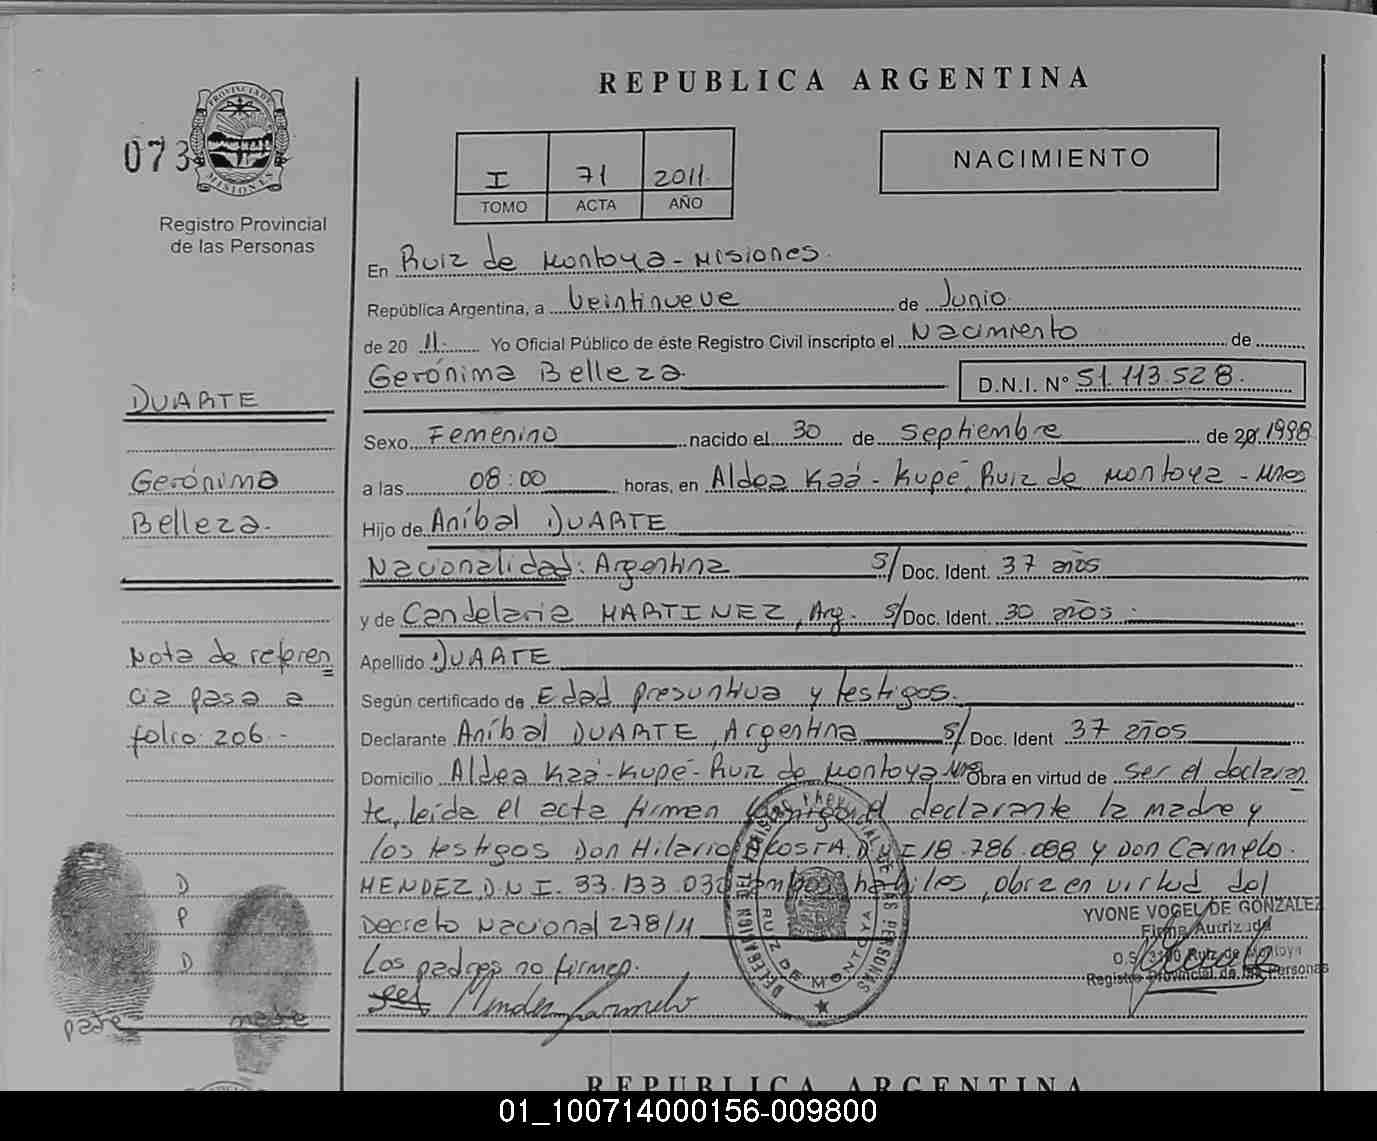 REPUBLICA ARGENTINA
073
PROVINCIA DE
MISIONES
Registro Provincial
de las Personas
I 71 2011.
TOMO ACTA AÑO
NACIMIENTO
En Ruiz de Montoya - Misiones.
República Argentina, a Veintinueve de Junio.
de 20 11. Yo Oficial Público de éste Registro Civil inscripto el Nacimiento de
Gerónima Belleza. D.N.I. N° 51.113.528.
DUARTE
Gerónima
Belleza.
Sexo Femenino nacido el 30 de Septiembre de 20 1998
a las 08:00 horas, en Aldea Kaá-Kupé, Ruiz de Montoya - Mnes
Hijo de Aníbal DUARTE
Nacionalidad: Argentina S/ Doc. Ident. 37 años
y de Candelaria MARTINEZ, Arg. S/ Doc. Ident. 30 años.
Apellido DUARTE
Según certificado de Edad presuntiva y testigos.
Declarante Aníbal DUARTE, Argentina S/ Doc. Ident 37 años
Domicilio Aldea Kaá-Kupé-Ruiz de Montoya Mnes Obra en virtud de ser el declaran
te, leída el acta firman conmigo el declarante la madre y
los testigos Don Hilario COSTA. D.N.I 18.786.088 y Don Carmelo.
MENDEZ D.N.I. 33.133.032 ambos habiles, obra en virtud del
Decreto Nacional 278/11
Los padres no firman.
Mendez Carmelo
Nota de referen
cia pasa a
folio 206.-
D
P
D
padre madre
DELEGACION DEL REGISTRO PROVINCIAL DE LAS PERSONAS
RUIZ DE MONTOYA
YVONE VOGEL DE GONZALEZ
Firma Autrizada
O.S. 3100 Ruiz de Montoya
Registro Provincial de las Personas
REPUBLICA ARGENTINA
01_100714000156-009800